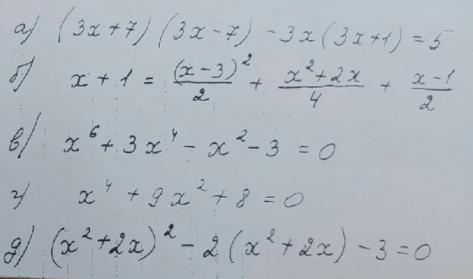 а) (3x+7)(3x-7)-3x(3x+1)=5
б) x+1=(x-3)²/2+(x²+2x)/4+(x-1)/2
в) x⁶+3x⁴-x²-3=0
г) x⁴+9x²+8=0
д) (x²+2x)²-2(x²+2x)-3=0